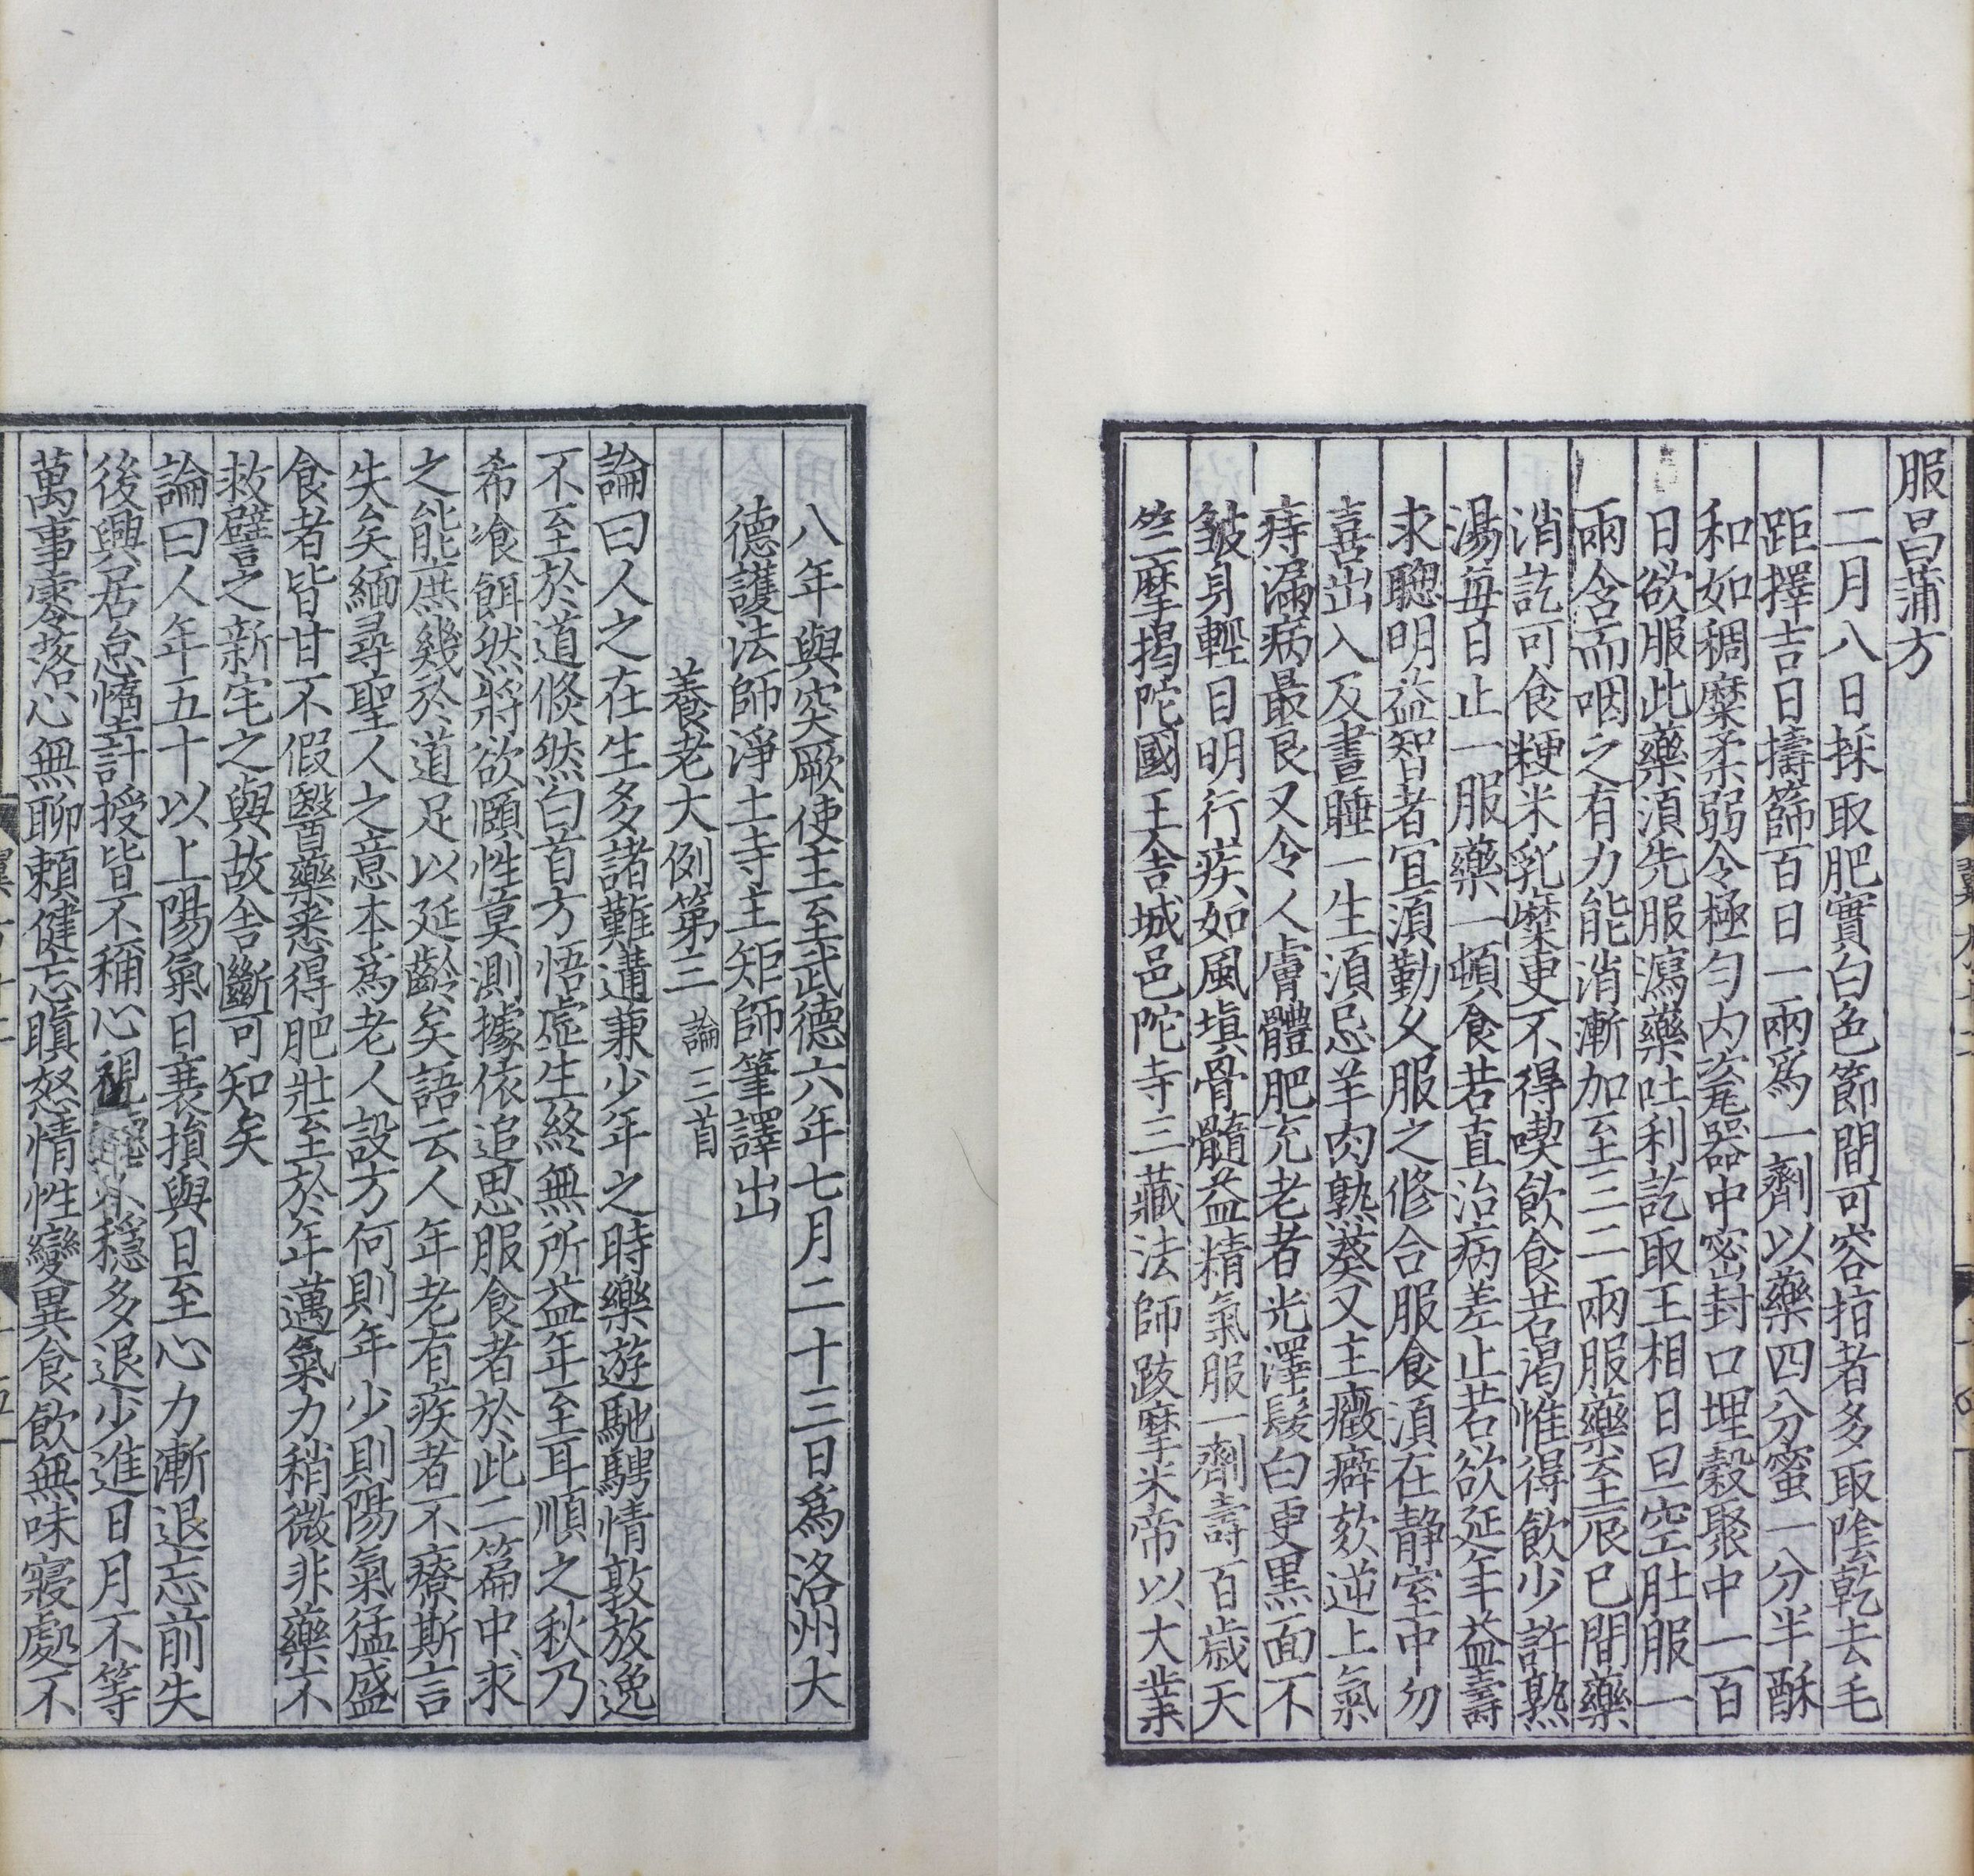 服昌蒲方
二月八日採取肥實白色節間可容指者多取陰乾去毛
距擇吉日擣篩百日一兩爲一劑以藥四分蜜一分半酥
和如稠糜柔弱令極勻内瓷器中密封口埋穀聚中一百
日欲服此藥湏先服瀉藥吐利訖取王相日旦空肚服一
兩含而咽之有力能消漸加至三二兩服藥至辰巳間藥
消訖可食粳米乳糜更不得喫飲食若渴惟得飲少許熟
湯每日止一服藥一頓食若直治病差止若欲延年益壽
求聰明益智者宜湏勤久服之修合服食湏在靜室中勿
喜出入及晝睡一生湏忌羊肉熟葵又主癥癖欬逆上氣
痔漏病最良又令人膚體肥充老者光澤髮白更黒面不
皺身輕目明行疾如風塡骨髓益精氣服一劑壽百歳天
竺摩揭陀國王舎城邑陀寺三藏法師跋摩米帝以大業
八年與突厥使主至武德六年七月二十三日爲洛州大
德護法師淨土寺主矩師筆譯出
養老大例第三 論三首
論曰人之在生多諸難遘兼少年之時樂遊馳騁情敦放逸
不至於道倐然白首方悟虛生終無所益年至耳順之秋乃
希飡餌然將欲頥性莫測據依追思服食者於此二篇中求
之能庶幾於道足以延齡矣語云人年老有疾者不療斯言
失矣緬尋聖人之意本爲老人設方何則年少則陽氣猛盛
食者皆甘不假醫藥悉得肥壯至於年邁氣力稍微非藥不
救譬之新宅之與故舎斷可知矣
論曰人年五十以上陽氣日衰損與日至心力漸退忘前失
後興居怠惰計授皆不稱心視聽不穩多退少進日月不等
萬事零落心無聊頼健忘瞋怒情性變異食飲無味寢處不